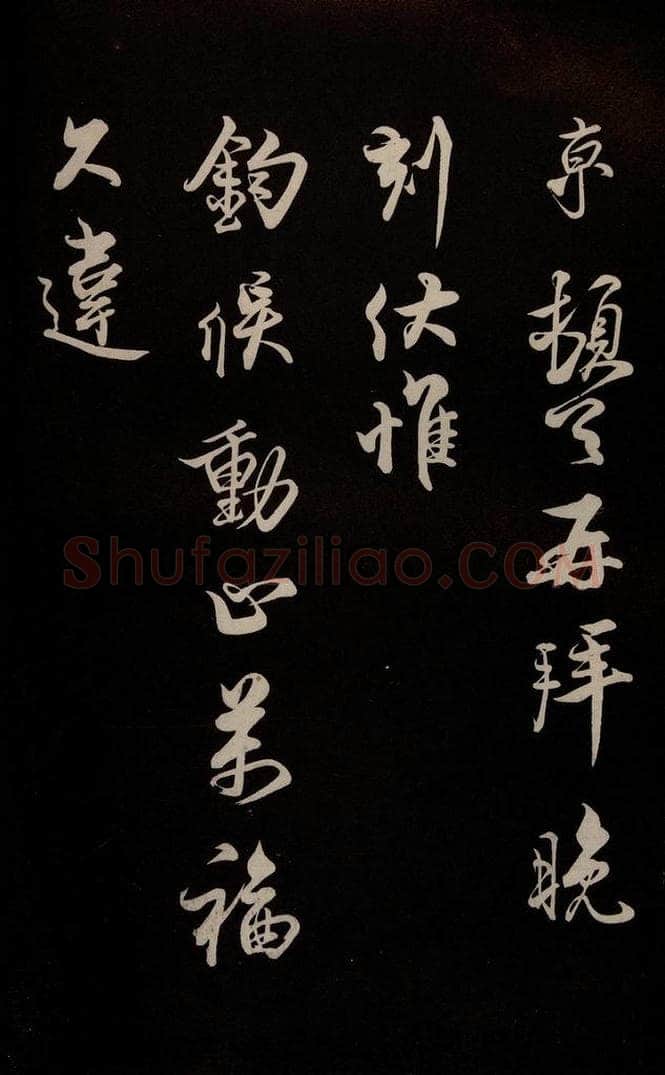 京頓首再拜晚
刻伏惟
鈞候動止萬福
久違
Shufaziliao.com